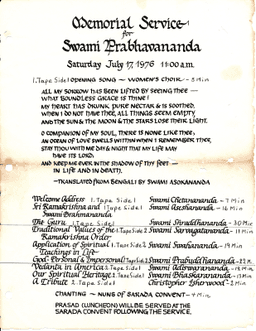 Memorial Service
for
Swami Prabhavananda
Saturday July 17, 1976 11:00 a.m.
1. Tape Side 1 OPENING SONG ~ WOMEN'S CHOIR - 8 Min
ALL MY SORROW HAS BEEN LIFTED BY SEEING THEE —
WHAT BOUNDLESS GRACE IS THINE!
MY HEART HAS DRUNK PURE NECTAR & IS SOOTHED.
WHEN I DO NOT HAVE THEE, ALL THINGS SEEM EMPTY,
AND THE SUN & THE MOON & THE STARS LOSE THEIR LIGHT.
O COMPANION OF MY SOUL, THERE IS NONE LIKE THEE;
AN OCEAN OF LOVE SWELLS WITHIN WHEN I REMEMBER THEE,
STAY THOU WITH ME DAY & NIGHT THAT MY LIFE MAY
HAVE ITS LORD;
AND KEEP ME EVER IN THE SHADOW OF THY FEET —
IN LIFE AND IN DEATH.
~TRANSLATED FROM BENGALI BY SWAMI ASOKANANDA
Welcome Address 1. Tape Side 1 Swami Chetanananda - 7 Min
Sri Ramakrishna and 1. Tape Side 1 Swami Aseshananda - 16 Min
Swami Brahmananda
The Guru 1. Tape Side 1 Swami Shraddhananda - 30 Min
Traditional Values of the 1. Tape Side 2 Swami Sarvagatananda
Ramakrishna Order
Application of Spiritual 1. Tape Side 2 Swami Swahananda - 19 Min
Teachings in Life
God - Personal & Impersonal Swami Prabuddhananda
Vedanta in America Swami Adiswarananda
Our Spiritual Heritage Swami Bhaskarananda
A Tribute 2. Tape Side 2 Christopher Isherwood - 2 Min
CHANTING ~ NUNS OF SARADA CONVENT
PRASAD LUNCHEON WILL BE SERVED AT THE
SARADA CONVENT FOLLOWING THE SERVICE.